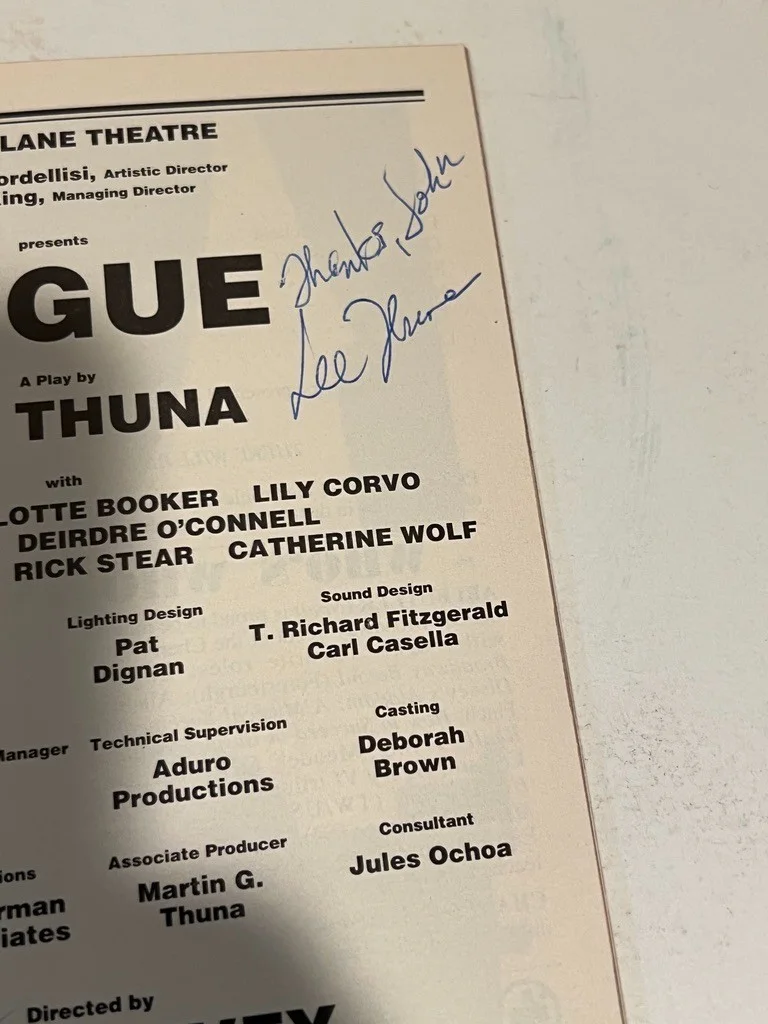 LANE THEATRE
ordellisi, Artistic Director
ing, Managing Director
presents
GUE
Thanks, John
Lee Thuna
A Play by
THUNA
with
LOTTE BOOKER LILY CORVO
DEIRDRE O'CONNELL
RICK STEAR CATHERINE WOLF
Lighting Design
Pat
Dignan
Sound Design
T. Richard Fitzgerald
Carl Casella
Manager
Technical Supervision
Aduro
Productions
Casting
Deborah
Brown
ions
rman
iates
Associate Producer
Martin G.
Thuna
Consultant
Jules Ochoa
Directed by
WHO'S WHO